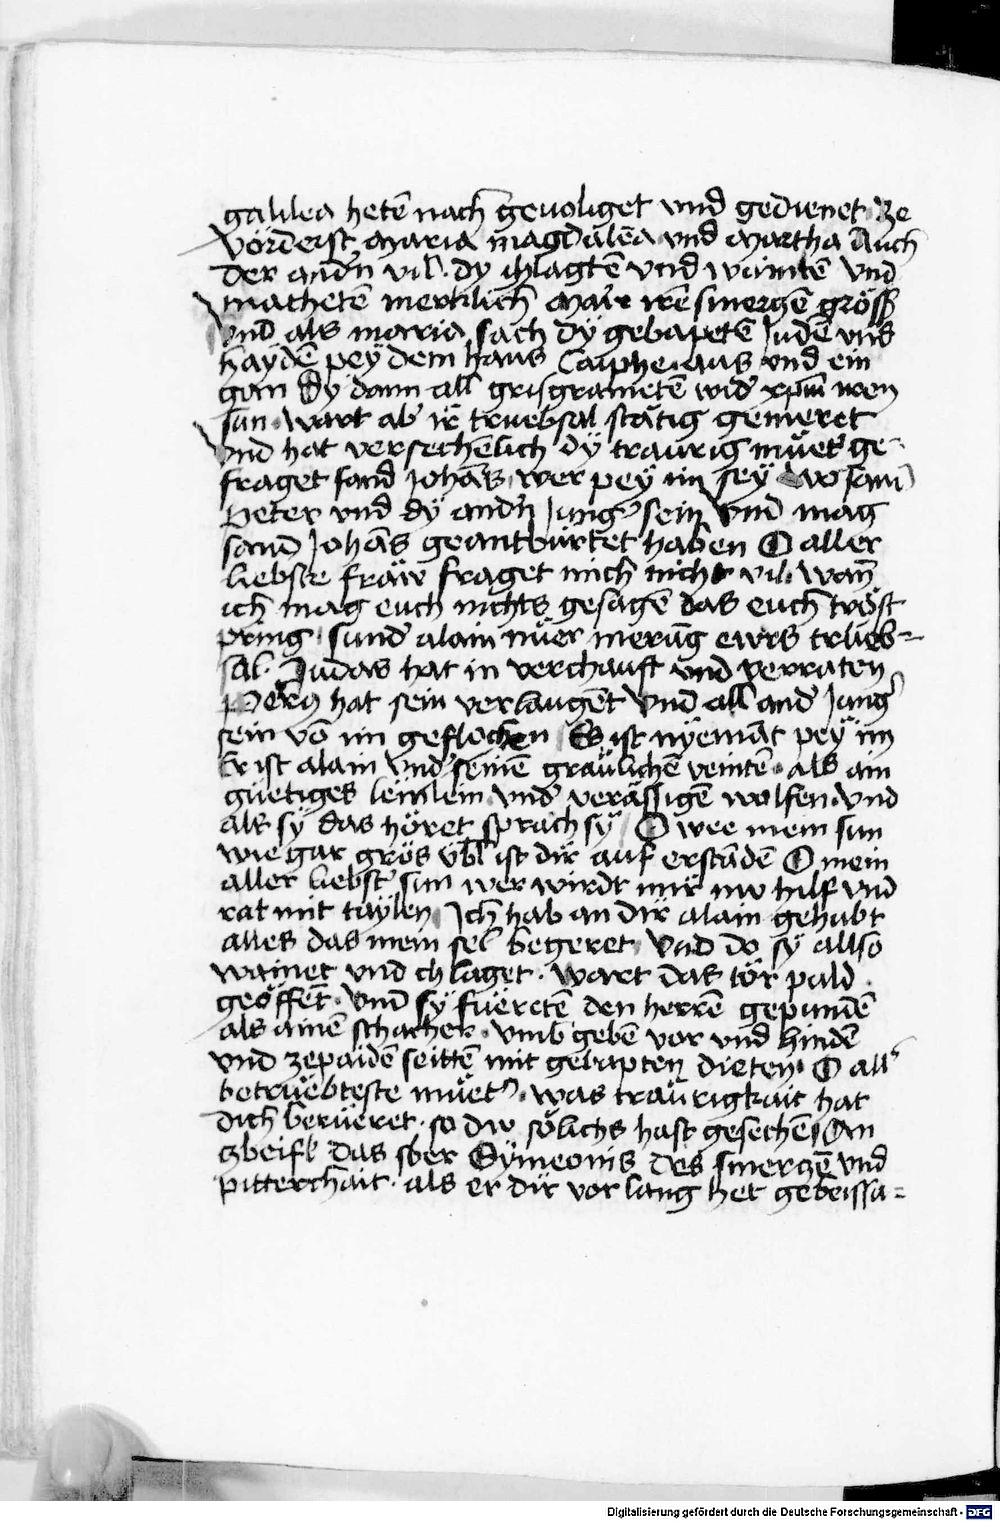 galilea hetē nach geuolget vnd gedienet ze
vörderist maria magdalēa vnd martha Auch
der and'n vil. dy chlagtē vnd waintē vnd
machetē merklich mar irē smerczē gröss
vnd als maria sach dÿ gebapētē Judē vnd
haydē pey dem haus Caiphe. aus vnd ein
gan Dy dann all grisgrametē wid' xpm̄ iren
sun. Wart ab' ir truebsal stätig gemeret
vnd hat versechēlich dÿ traurig müet' ge-
fraget sand Johās, wer peÿ im seÿ wo sand
Peter vnd dÿ and'n Jung' sein vnd mag
sand Johās geantburtet haben O aller
liebste fraw fraget mich nicht vil. wan̄
ich mag euch nichts gesagē das euch tröst
pring. sund' alain nüer merūg ewrs trüeb-
sal. Judas hat in verchauft vnd verraten
Pet' hat sein verlaugēt vnd all and' Jung'
sein vō im geflochen Es ist nÿemāt peÿ im
Er ist alain vnd' seinē gräulichē veintē. als ain
güetiges lemlein vnd' verässigē wolfen. vnd
als sÿ das höret sprach sÿ O wee mein sun
wie gar grös übl ist dir auf erstādē O mein
aller liebst' sun wer wirdt mir nw hilf vnd
rat mit taÿlen Ich hab an dir alain gehabt
alles das mein sel begeret vnd do sÿ allso
wainet vnd chlaget. Wart das tör pald
geöffēt. vnd sÿ füertē den herrē gepundē
als ainē schacher. vmb gebē vor vnd hindē
vnd zepaidē seittē mit gebapten dieten. O all'
betrüebteste müet'. was traurigkait hat
dich berüeret. so dw sölichs hast gesechē An
zbeifl das sber Sÿmeonis des smerczē vnd
pitterchait. als er dir vor lang het gebeissa-
Digitalisierung gefördert durch die Deutsche Forschungsgemeinschaft - DFG